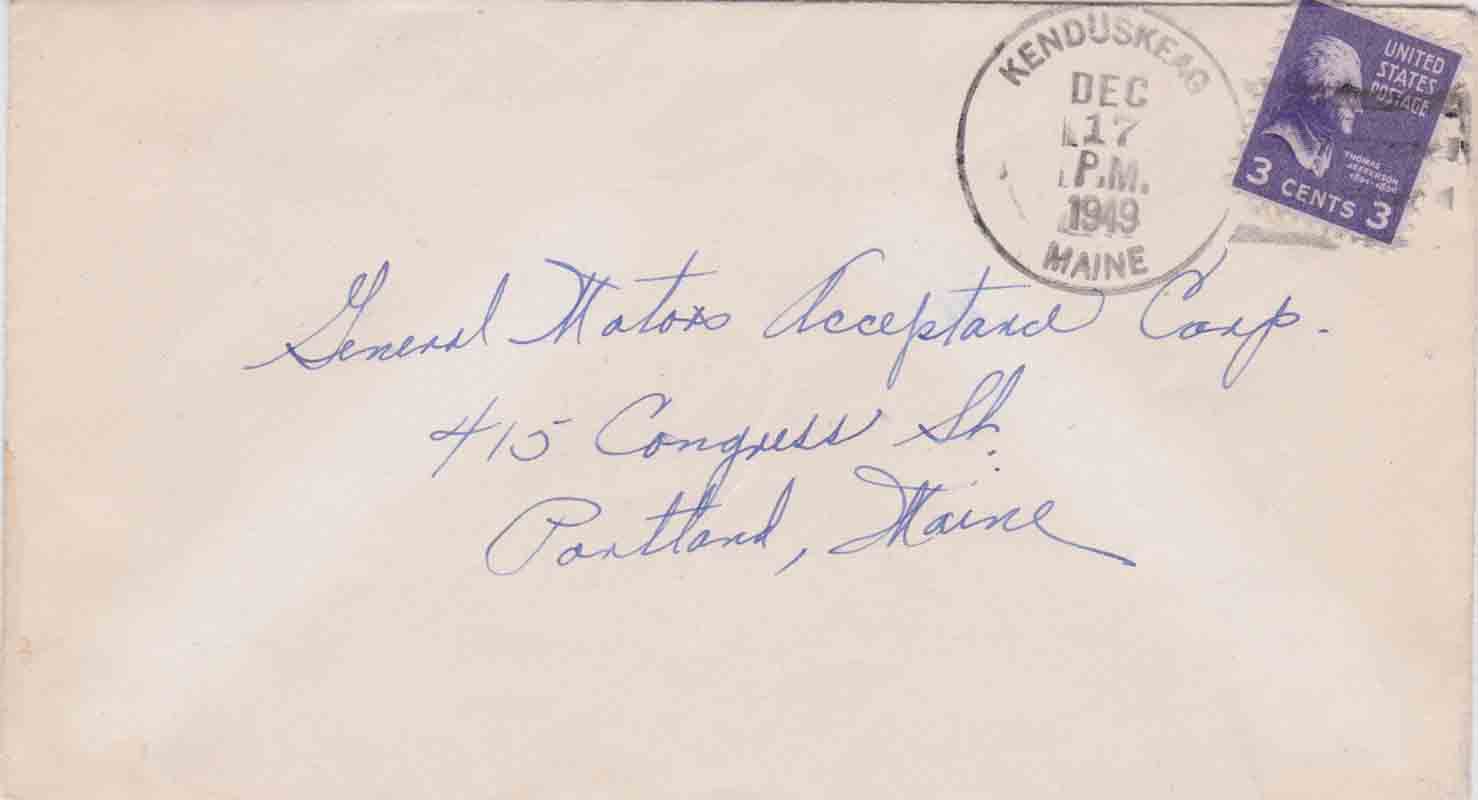 KENDUSKEAG
DEC
17
P.M.
1949
MAINE
UNITED
STATES
POSTAGE
THOMAS
JEFFERSON
1801-1809
3 CENTS 3
General Motors Acceptance Corp.
415 Congress St.
Portland, Maine